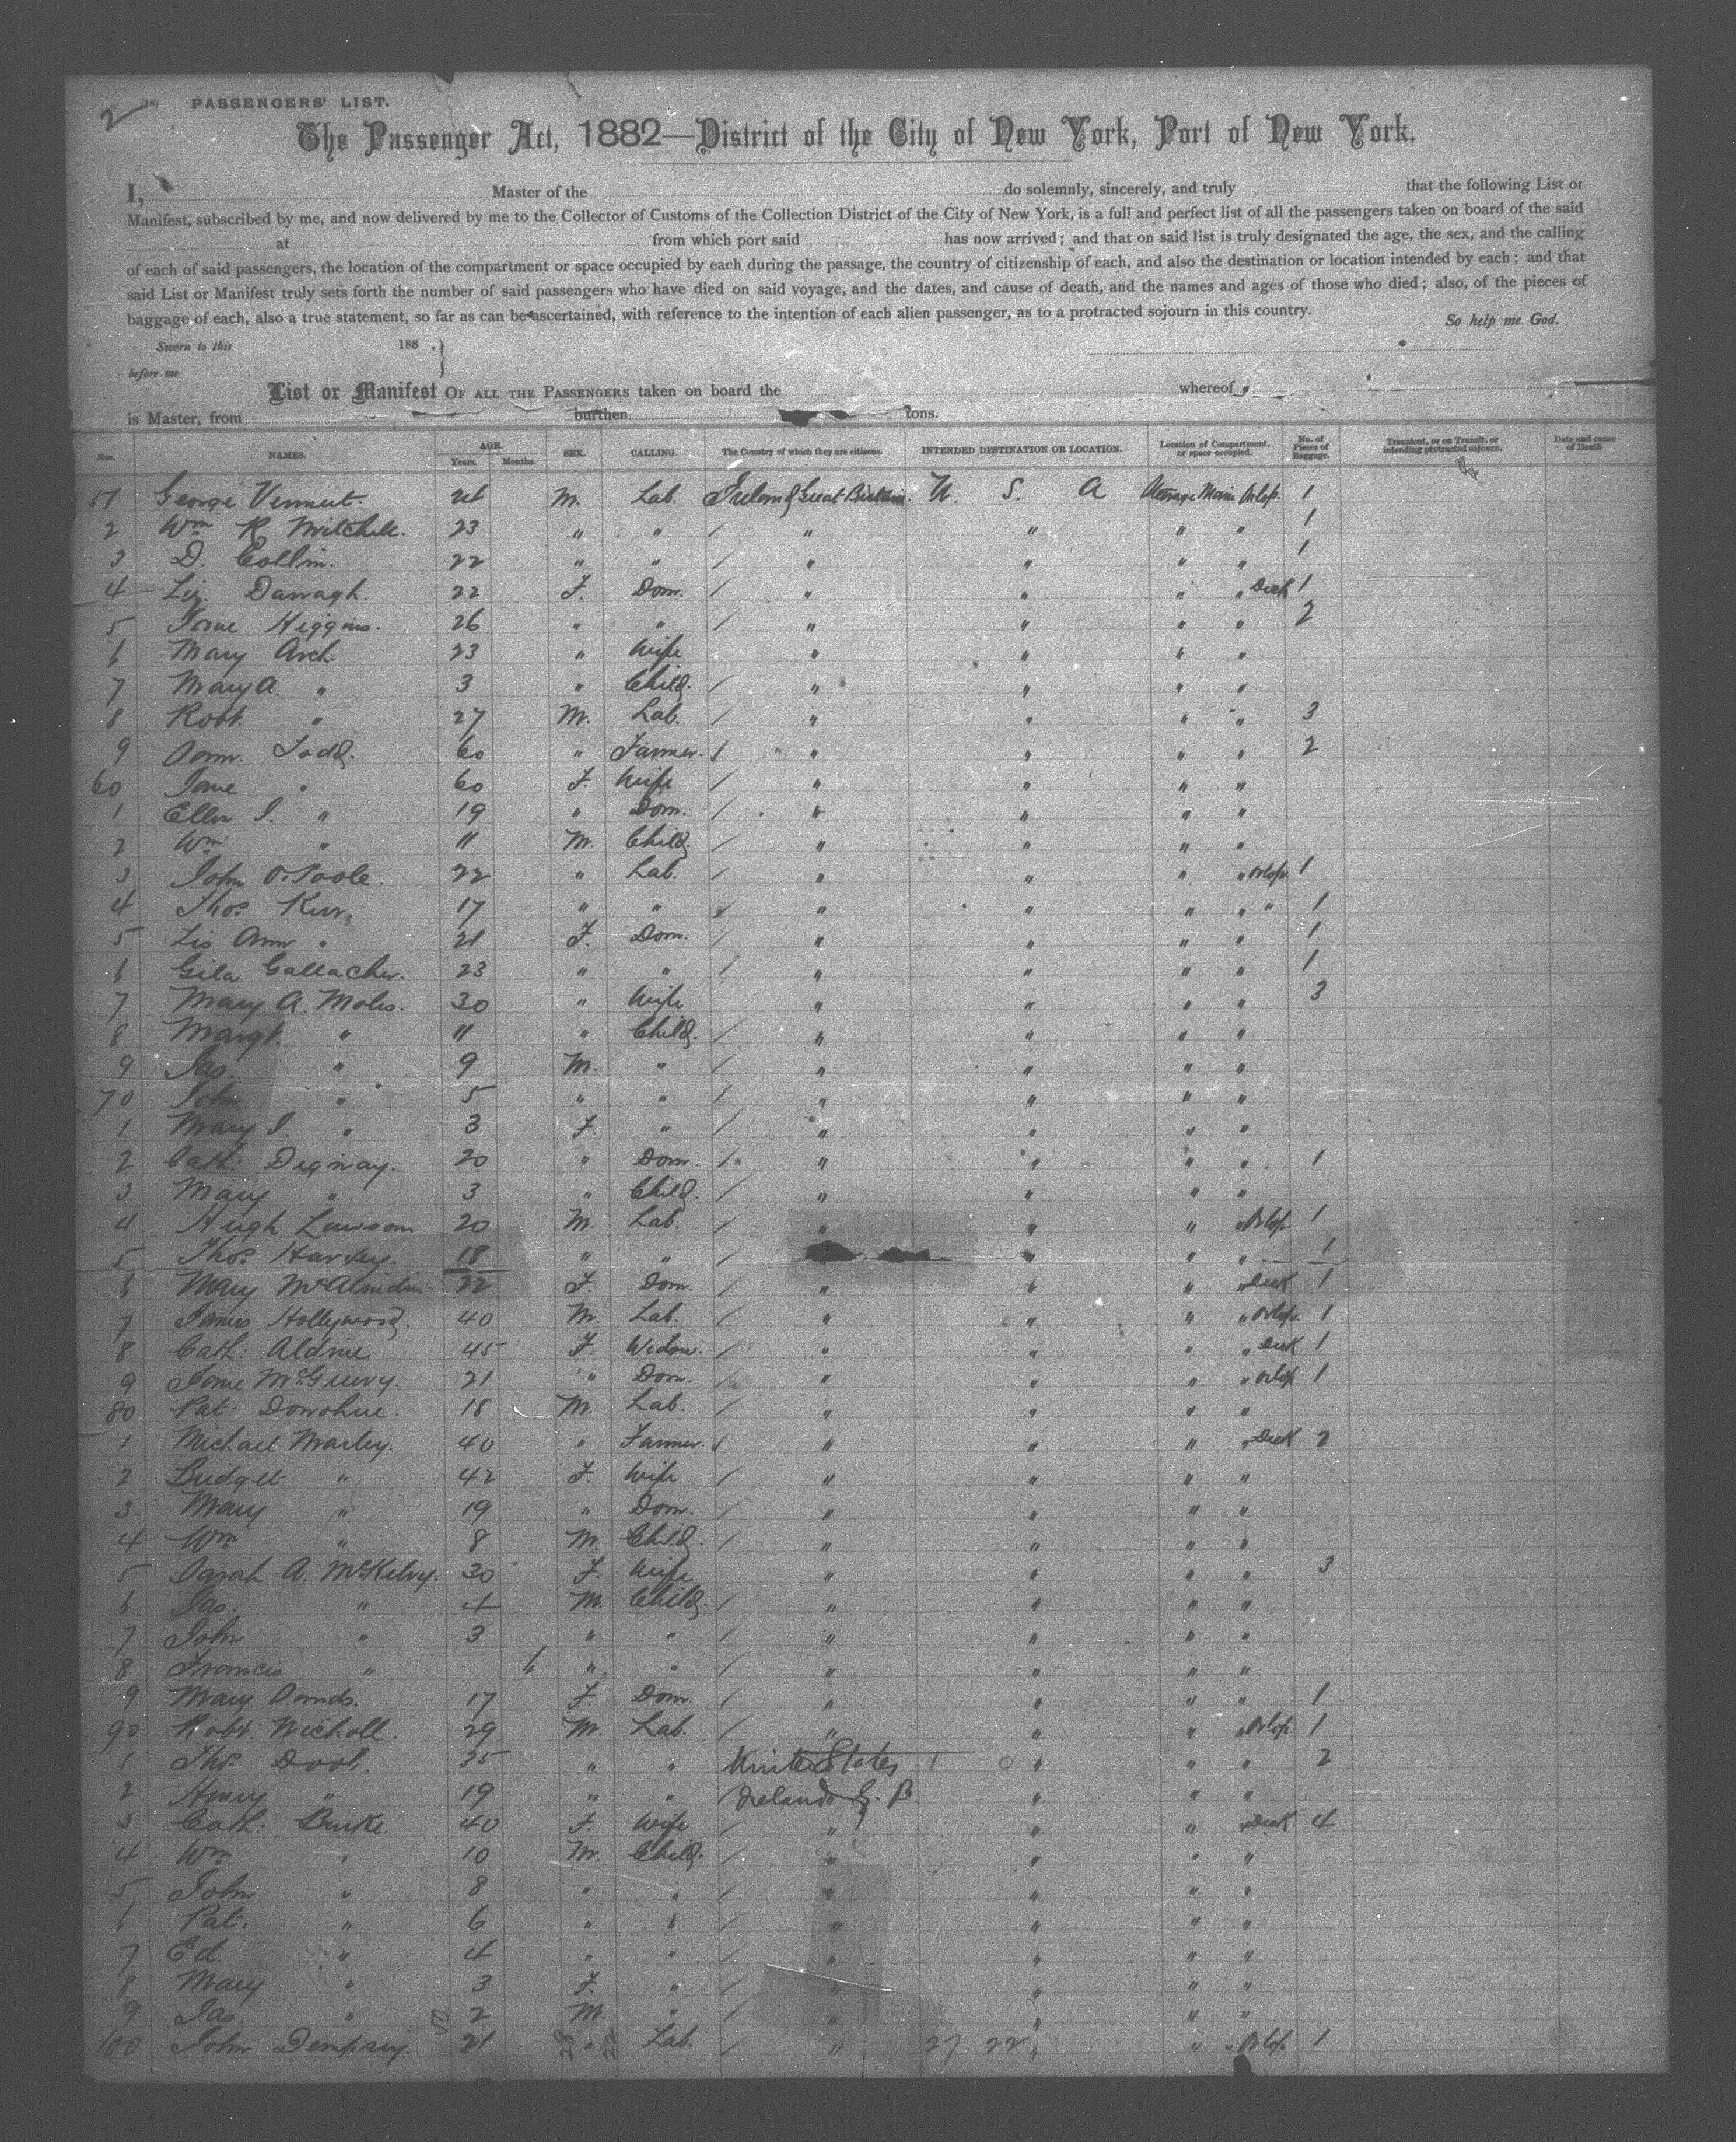 2 (18) PASSENGERS' LIST.
The Passenger Act, 1882—District of the City of New York, Port of New York.
I, Master of the do solemnly, sincerely, and truly that the following List or
Manifest, subscribed by me, and now delivered by me to the Collector of Customs of the Collection District of the City of New York, is a full and perfect list of all the passengers taken on board of the said
at from which port said has now arrived; and that on said list is truly designated the age, the sex, and the calling
of each of said passengers, the location of the compartment or space occupied by each during the passage, the country of citizenship of each, and also the destination or location intended by each; and that
said List or Manifest truly sets forth the number of said passengers who have died on said voyage, and the dates, and cause of death, and the names and ages of those who died; also, of the pieces of
baggage of each, also a true statement, so far as can be ascertained, with reference to the intention of each alien passenger, as to a protracted sojourn in this country. So help me God.
Sworn to this 188 .}
before me
List or Manifest OF ALL THE PASSENGERS taken on board the whereof
is Master, from burthen tons.
Nos. NAMES. AGE. Years. Months. SEX. CALLING. The Country of which they are citizens. INTENDED DESTINATION OR LOCATION. Location of Compartment, or space occupied. No. of Pieces of Baggage. Transient, or on Transit, or intending protracted sojourn. Date and cause of Death.
51 George M. Lab. Ireland Great Britain. U. S. A Steerage Main Orlop. 1
2 Wm R Mitchell. 23 " " / " " " " 1
3 D. Collin. 22 " " / " " " " 1
4 Liz. Darragh. 22 F. Dom. / " " " " Deck 1
5 Jane Higgins. 26 " " / " " " " 2
6 Mary Arch. 23 " Wife " " " "
7 Mary A. " 3 " Child. / " " " "
8 Robt. " 27 M. Lab. / " " " " 3
9 Todd. 60 " Farmer. / " " " " 2
60 Jane " 60 F. Wife / " " " "
1 Ellen J. " 19 " Dom. / " " " "
2 Wm " 11 M. Child. / " " " "
3 John O'Toole. 22 " Lab. / " " " " Orlop. 1
4 Thos. Kerr. 17 " " / " " " " " 1
5 Lis Ann " 21 F. Dom. / " " " " 1
6 Gila Gallacher. 23 " " / " " " " 1
7 Mary A. Moles. 30 " Wife " " " " 3
8 Margt. " 11 " Child. / " " " "
9 Jas. " 9 M. " / " " " "
70 John " 5 " " / " " " "
1 Mary J. " 3 F. " / " " " "
2 Cath: Degnay. 20 " Dom. / " " " " 1
3 Mary " 3 " Child. / " " " "
4 Hugh Lawson 20 M. Lab. / " " " " Orlop. 1
5 Thos. Harvey. 18 " " / " " " 1
6 Mary 22 F. Dom. / " " " " Deck 1
7 James Hollywood. 40 M. Lab. / " " " " Orlop. 1
8 Cath: Aldine 45 F. Widow. / " " " " Deck 1
9 Jane McGreevy. 21 " Dom. / " " " " Orlop 1
80 Pat: Donohue. 18 M. Lab. / " " " "
1 Michael Marley. 40 " Farmer. / " " " " Deck 2
2 Bridget " 42 F. Wife / " " " "
3 Mary " 19 " Dom. / " " " "
4 Wm " 8 M. Child. / " " " "
5 Sarah A. McKelvy. 30 F. Wife " " " " 3
6 Jas. " 4 M. Child. / " " " "
7 John " 3 " " / " " " "
8 Francis " 6 " " / " " " "
9 Mary 17 F. Dom. / " " " " 1
90 Robt. Nicholl. 29 M. Lab. / " " " " Orlop. 1
1 Thos. Dool. 35 " " United States 1 0 " " " 2
2 Henry " 19 " " Ireland G. B " " "
3 Cath: Burke. 40 F. Wife / " " " " Deck 4
4 Wm " 10 M. Child. / " " " "
5 John " 8 " " / " " " "
6 Pat. " 6 " " / " " " "
7 Ed. " 4 " " / " " " "
8 Mary " 3 F. " / " " " "
9 Jas. " 2 M. " / " " " "
100 John Dempsey. 21 " Lab. / " 27 22 " " " Orlop. 1